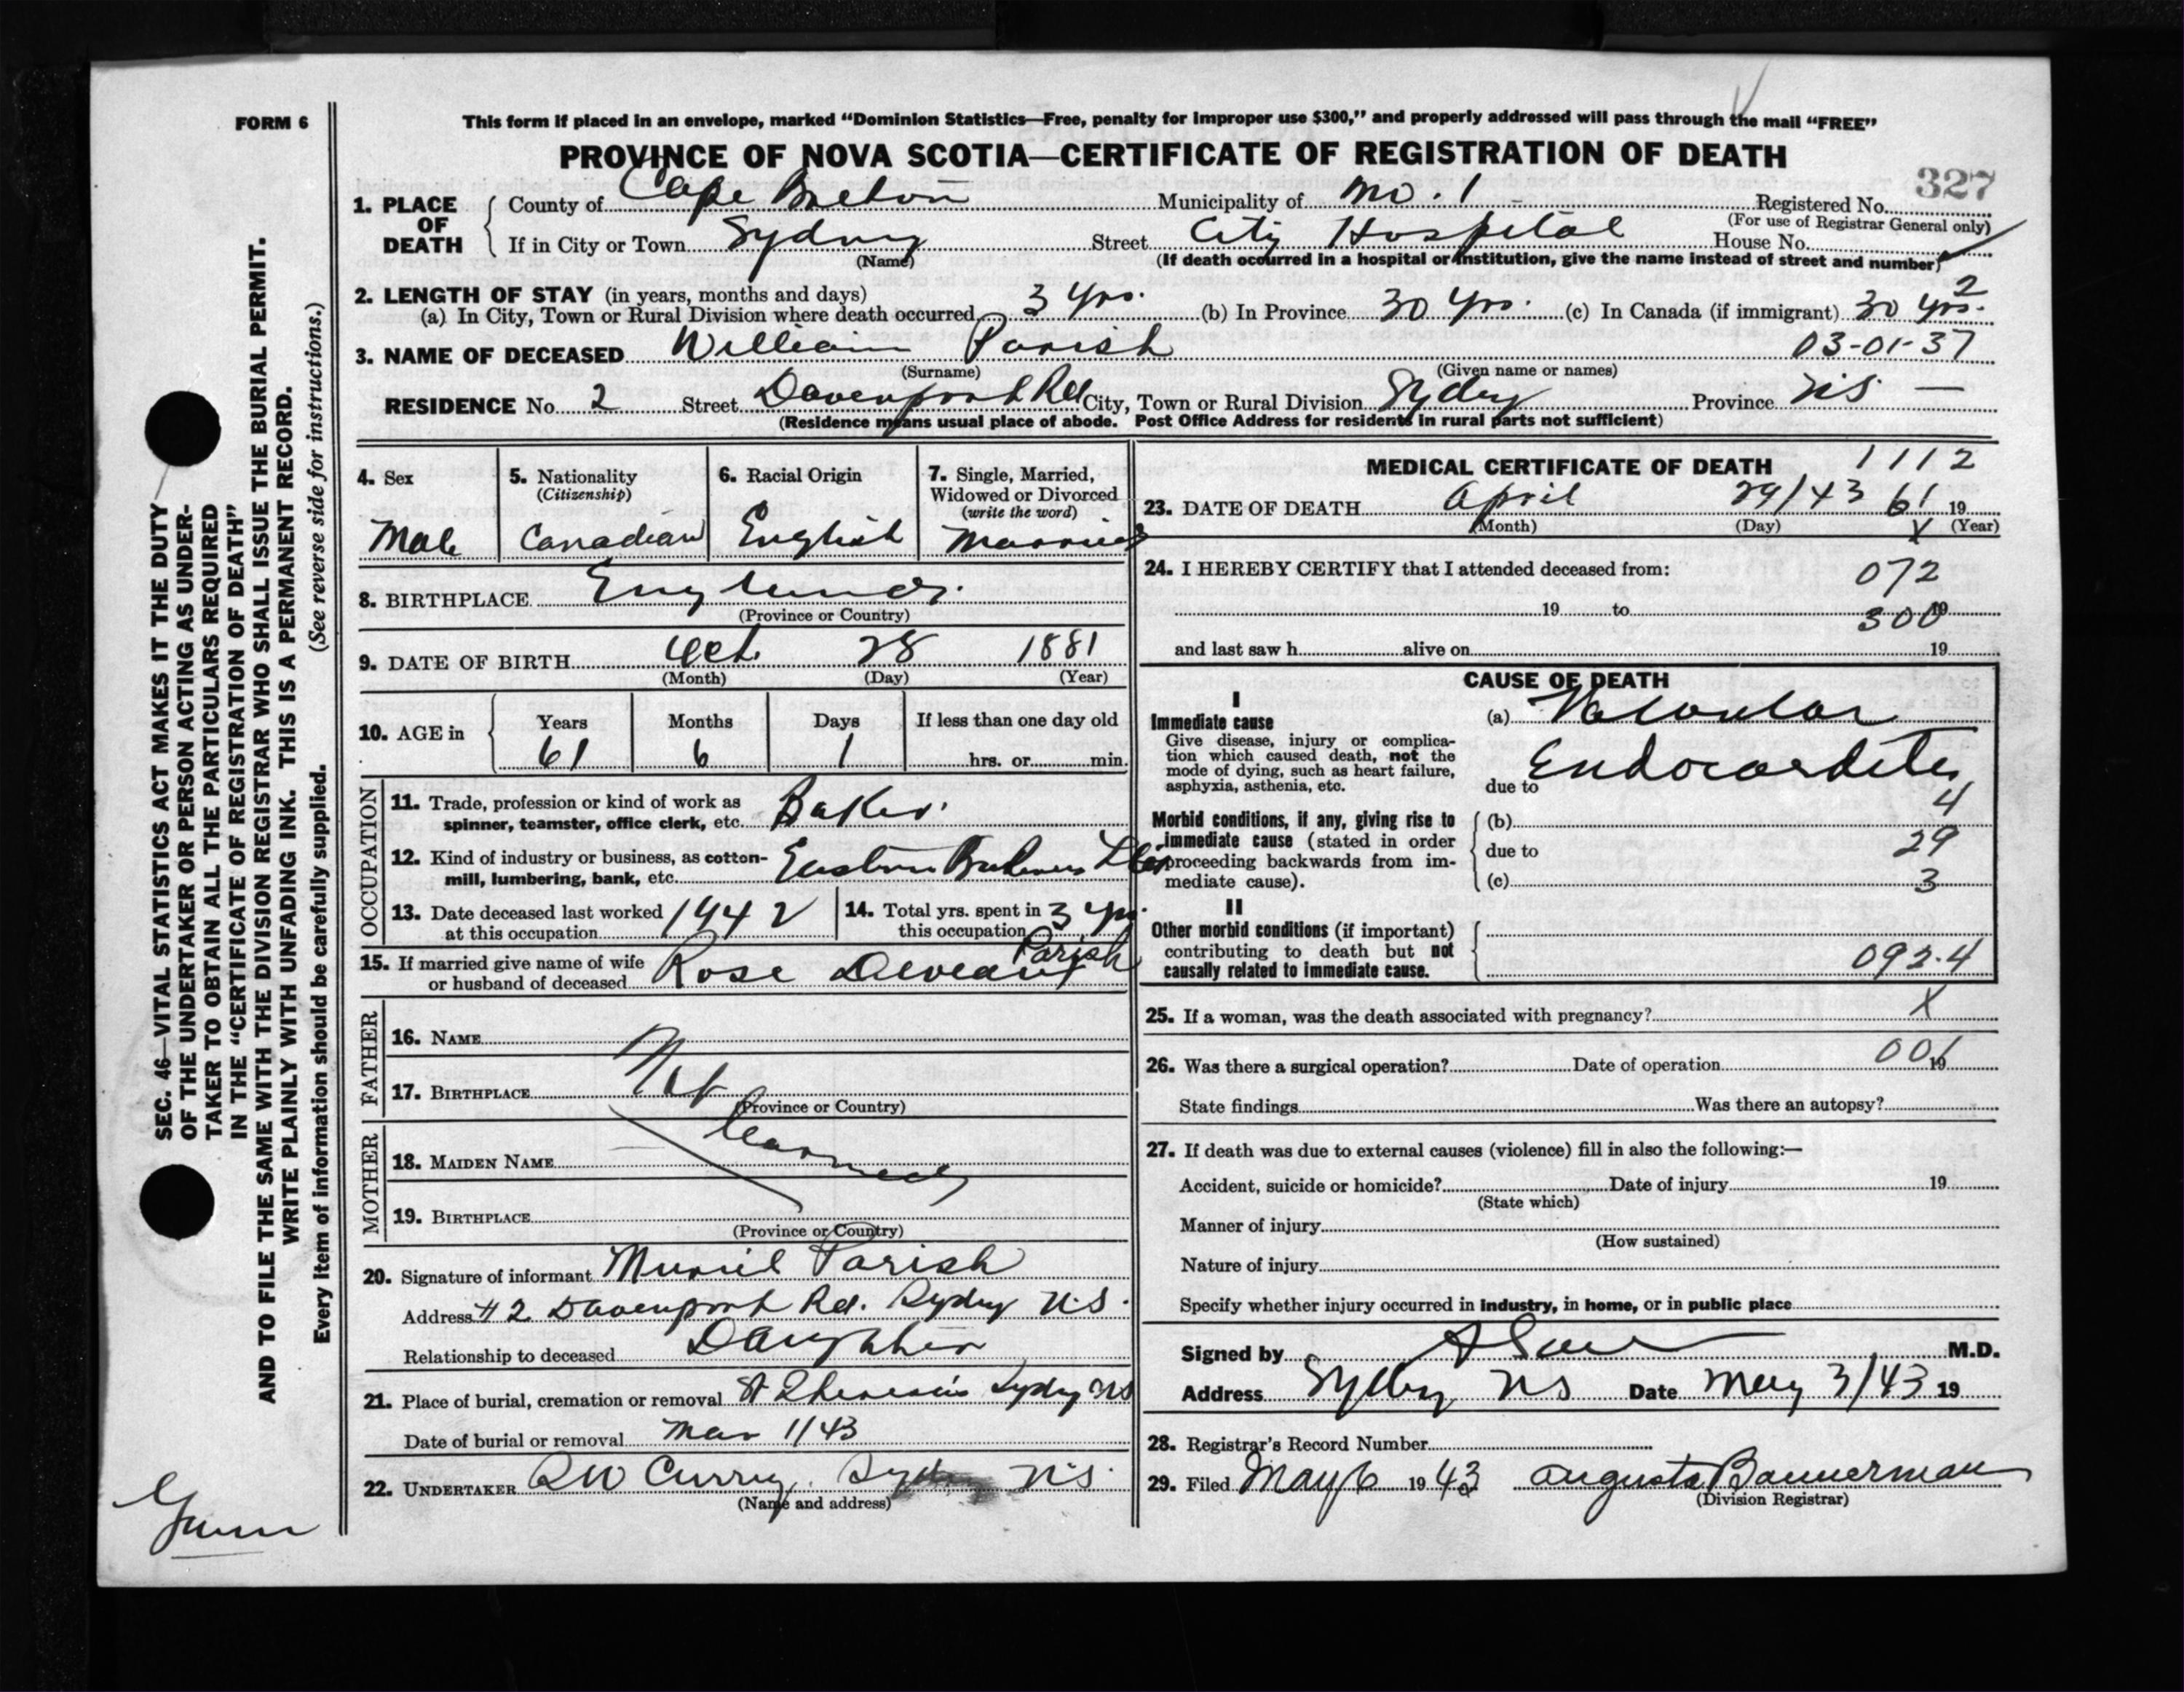 FORM 6
This form if placed in an envelope, marked “Dominion Statistics—Free, penalty for improper use $300,” and properly addressed will pass through the mail “FREE”
PROVINCE OF NOVA SCOTIA—CERTIFICATE OF REGISTRATION OF DEATH
327
1. PLACE OF DEATH
County of Cape Breton Municipality of No. 1 Registered No.
(For use of Registrar General only)
If in City or Town Sydney Street City Hospital House No.
(Name) (If death occurred in a hospital or institution, give the name instead of street and number)
2. LENGTH OF STAY (in years, months and days) 2
(a) In City, Town or Rural Division where death occurred 3 yrs. (b) In Province 30 yrs. (c) In Canada (if immigrant) 30 yrs.
3. NAME OF DECEASED William Parish 03-01-37
(Surname) (Given name or names)
RESIDENCE No. 2 Street Davenport Rd City, Town or Rural Division Sydney Province N.S. —
(Residence means usual place of abode. Post Office Address for residents in rural parts not sufficient)
4. Sex
Male
5. Nationality
(Citizenship)
Canadian
6. Racial Origin
English
7. Single, Married,
Widowed or Divorced
(write the word)
Married
8. BIRTHPLACE England.
(Province or Country)
9. DATE OF BIRTH Oct. 28 1881
(Month) (Day) (Year)
10. AGE in
Years Months Days If less than one day old
61 6 1 hrs. or min.
OCCUPATION
11. Trade, profession or kind of work as
spinner, teamster, office clerk, etc. Baker.
12. Kind of industry or business, as cotton-
mill, lumbering, bank, etc. Eastern
13. Date deceased last worked
at this occupation 1942
14. Total yrs. spent in
this occupation 3 yrs.
15. If married give name of wife
or husband of deceased Rose Parish
FATHER
16. NAME
17. BIRTHPLACE Not
(Province or Country)
MOTHER
18. MAIDEN NAME
19. BIRTHPLACE
(Province or Country)
20. Signature of informant Muriel Parish
Address # 2 Davenport Rd. Sydney N.S.
Relationship to deceased Daughter
21. Place of burial, cremation or removal Sydney NS
Date of burial or removal 1/43
22. UNDERTAKER Curry. N.S.
(Name and address)
MEDICAL CERTIFICATE OF DEATH 1112
23. DATE OF DEATH April 29/43 61 19
(Month) (Day) X (Year)
24. I HEREBY CERTIFY that I attended deceased from: 072
19 to 19
300
and last saw h alive on 19
CAUSE OF DEATH
I
Immediate cause
Give disease, injury or complica-
tion which caused death, not the
mode of dying, such as heart failure,
asphyxia, asthenia, etc.
(a) Valvular
due to Endocarditis
4
Morbid conditions, if any, giving rise to
immediate cause (stated in order
proceeding backwards from im-
mediate cause).
(b)
due to 29
(c) 3
II
Other morbid conditions (if important)
contributing to death but not
causally related to immediate cause.
092.4
25. If a woman, was the death associated with pregnancy? X
26. Was there a surgical operation? Date of operation 19
State findings Was there an autopsy?
27. If death was due to external causes (violence) fill in also the following:—
Accident, suicide or homicide? Date of injury 19
(State which)
Manner of injury
(How sustained)
Nature of injury
Specify whether injury occurred in industry, in home, or in public place
Signed by M.D.
Address Sydney NS Date May 3/43 19
28. Registrar's Record Number
29. Filed May 6 1943 Augusta Bannerman
(Division Registrar)
SEC. 46—VITAL STATISTICS ACT MAKES IT THE DUTY
OF THE UNDERTAKER OR PERSON ACTING AS UNDER-
TAKER TO OBTAIN ALL THE PARTICULARS REQUIRED
IN THE “CERTIFICATE OF REGISTRATION OF DEATH”
AND TO FILE THE SAME WITH THE DIVISION REGISTRAR WHO SHALL ISSUE THE BURIAL PERMIT.
WRITE PLAINLY WITH UNFADING INK. THIS IS A PERMANENT RECORD.
Every item of information should be carefully supplied. (See reverse side for instructions.)